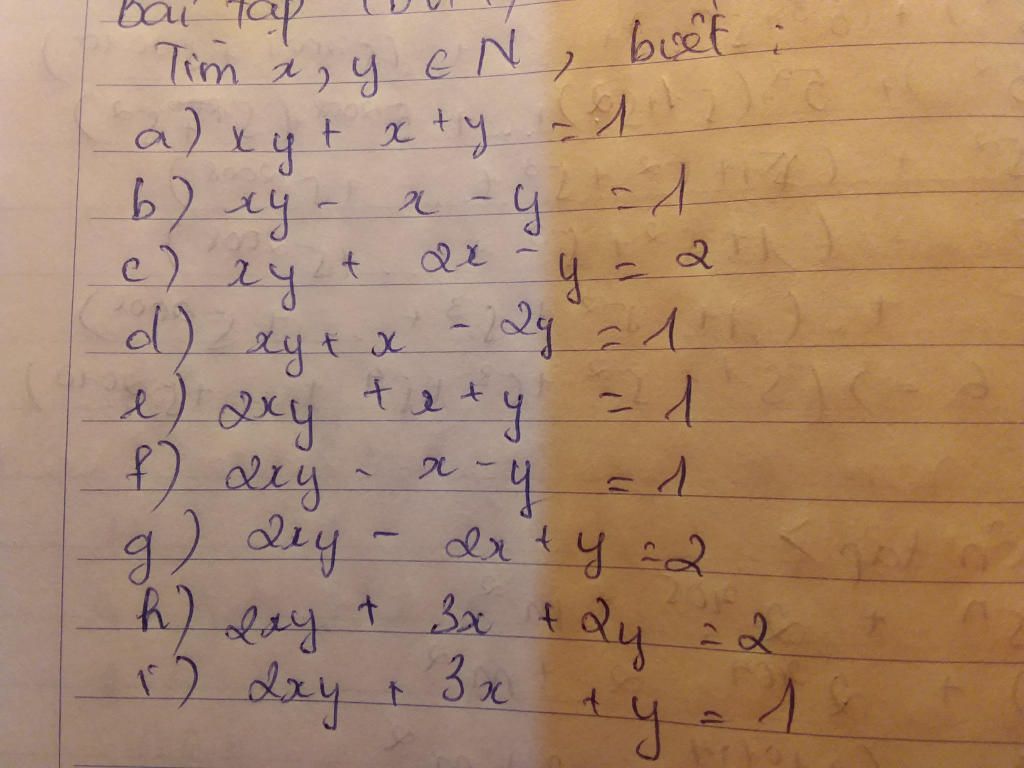 bài tập
Tìm x, y ∈ N, biết :
a) xy + x + y = 1
b) xy - x - y = 1
c) xy + 2x - y = 2
d) xy + x - 2y = 1
e) 2xy + x + y = 1
f) 2xy - x - y = 1
g) 2xy - 2x + y = 2
h) 2xy + 3x + 2y = 2
i) 2xy + 3x + y = 1